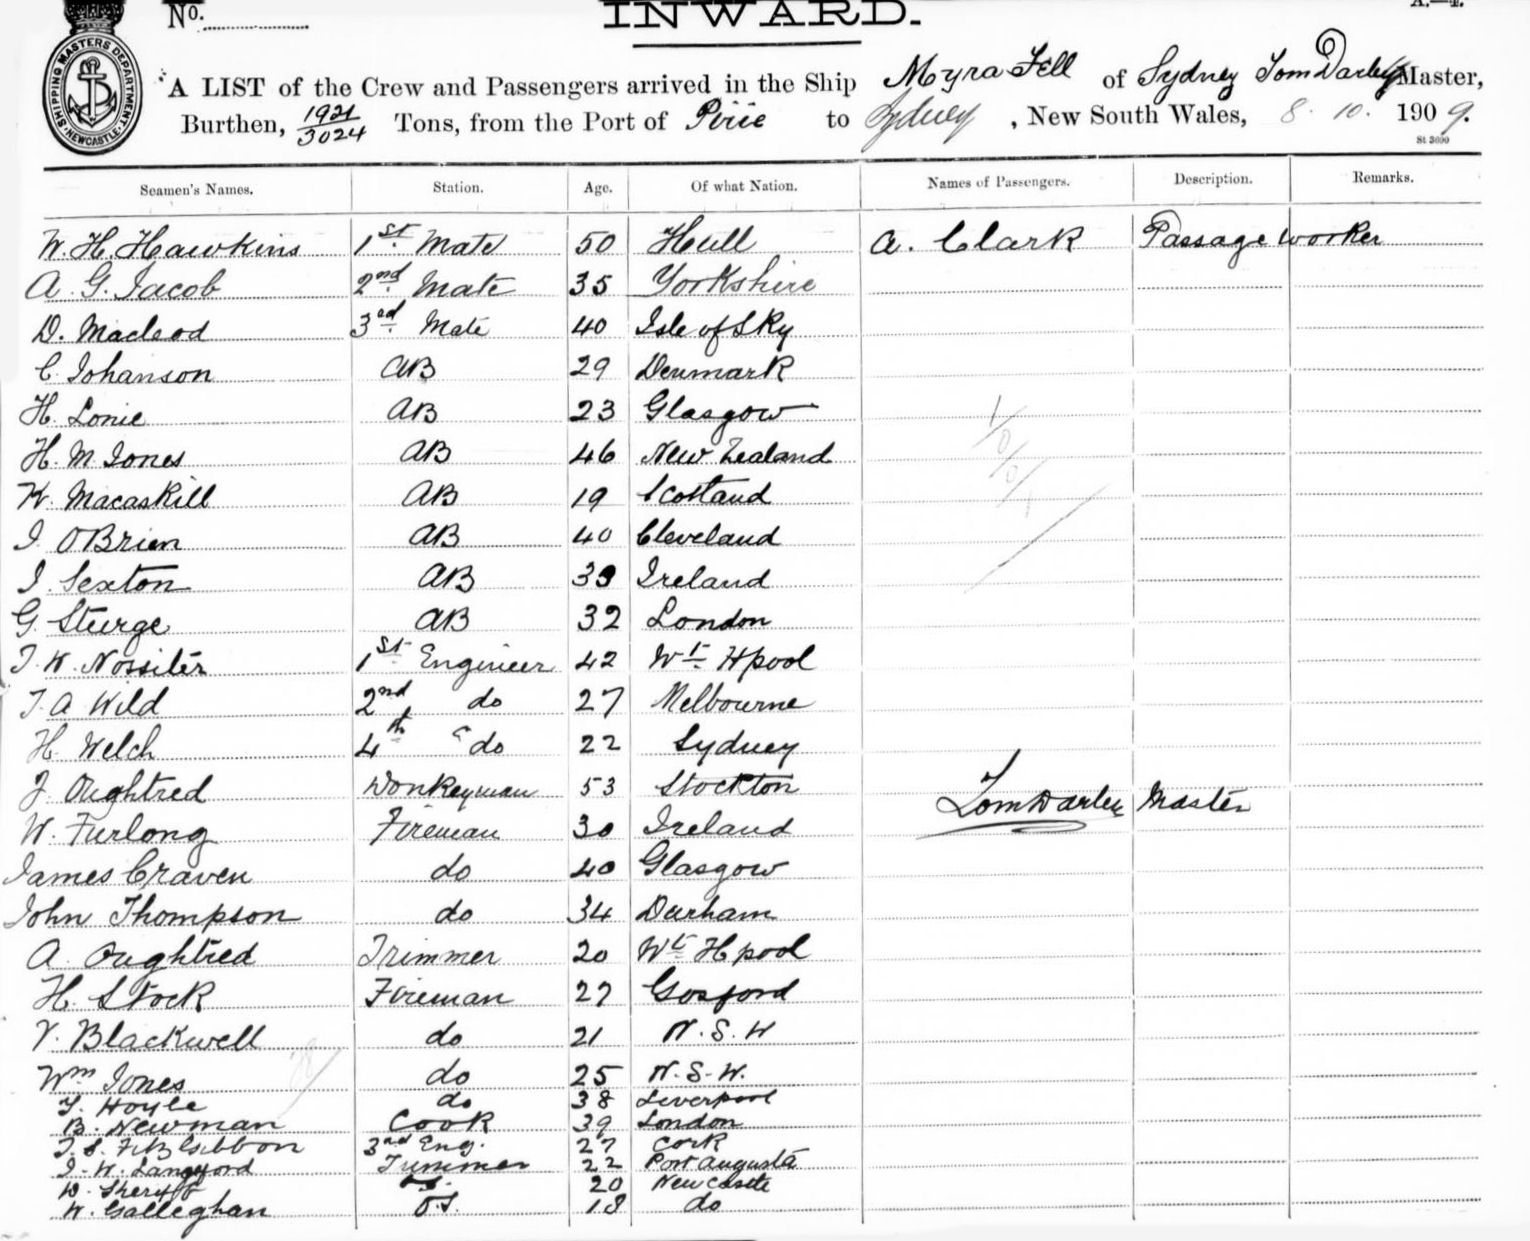 No.
INWARD.
A.—4.
SHIPPING MASTERS DEPARTMENT NEWCASTLE
A LIST of the Crew and Passengers arrived in the Ship Myra Fell of Sydney Tom Darley Master,
Burthen, 1921/3024 Tons, from the Port of Pirie to Sydney, New South Wales, 8. 10. 1909.
St 3690
Seamen's Names. Station. Age. Of what Nation. Names of Passengers. Description. Remarks.
W. H. Hawkins 1st Mate 50 Hull A. Clark Passage worker
A. G. Jacob 2nd Mate 35 Yorkshire
D. Macleod 3rd Mate 40 Isle of Sky
C. Johanson AB 29 Denmark
H. Lonie AB 23 Glasgow
H. M. Jones AB 46 New Zealand
K. Macaskill AB 19 Scotland
J. O'Brien AB 40 Cleveland
J. Sexton AB 39 Ireland
G. Sturge AB 32 London
T. W. Nossiter 1st Engineer 42 Wt Hpool
T. A Wild 2nd do 27 Melbourne
H. Welch 4th do 22 Sydney
J. Oughtred Donkeyman 53 Stockton Tom Darley Master
W. Furlong Fireman 30 Ireland
James Craven do 40 Glasgow
John Thompson do 34 Durham
A. Oughtred Trimmer 20 Wt Hpool
H. Stock Fireman 27 Gosford
V. Blackwell do 21 N.S.W
Wm Jones do 25 N.S.W.
T. Hoyle do 38 Liverpool
B. Newman Cook 39 London
T. S. FitzGibbon 3rd Eng. 27 Cork
J. W. Langford Trimmer 22 Port Augusta
W. Sheriff O.S. 20 Newcastle
W. Galleghan O.S. 18 do